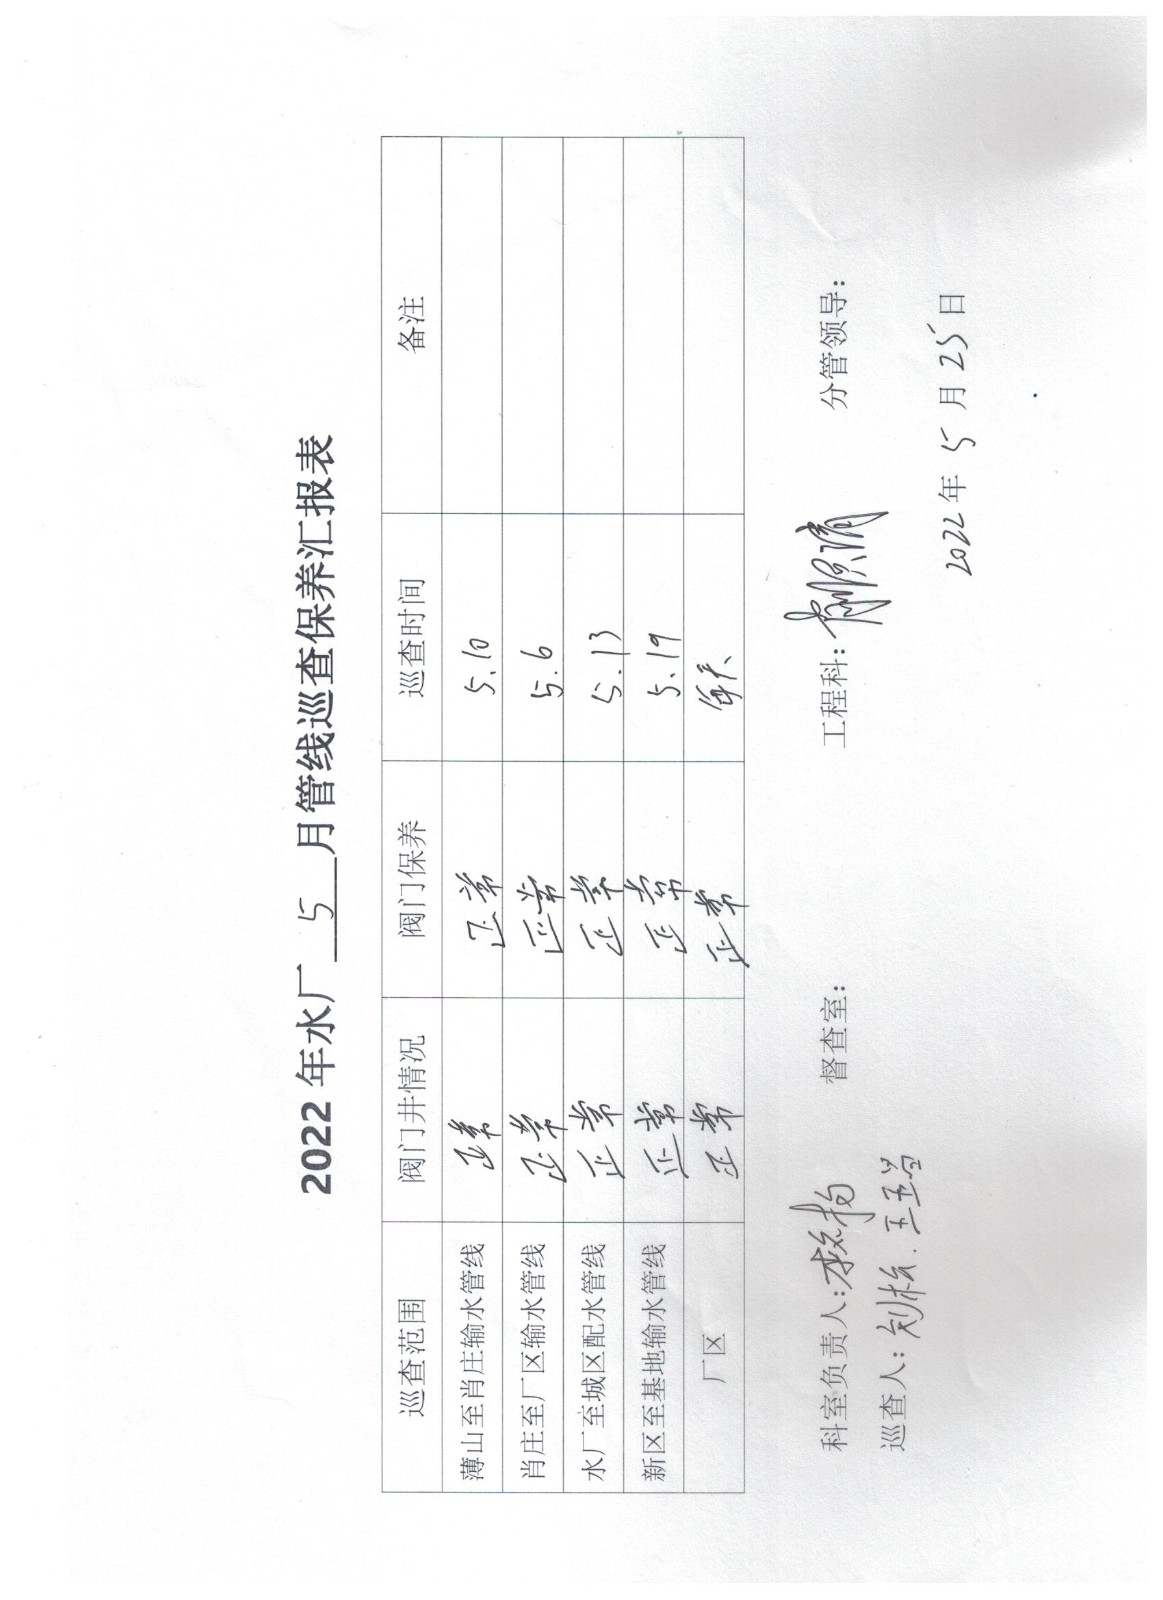 2022年水厂 5 月管线巡查保养汇报表
巡查范围 阀门井情况 阀门保养 巡查时间 备注
薄山至肖庄输水管线 正常 正常 5.10
肖庄至厂区输水管线 正常 正常 5.6
水厂至城区配水管线 正常 正常 5.13
新区至基地输水管线 正常 正常 5.19
厂区 正常 正常 每天
科室负责人: 督查室: 工程科: 分管领导:
巡查人: 刘松.
2022年 5 月 25 日